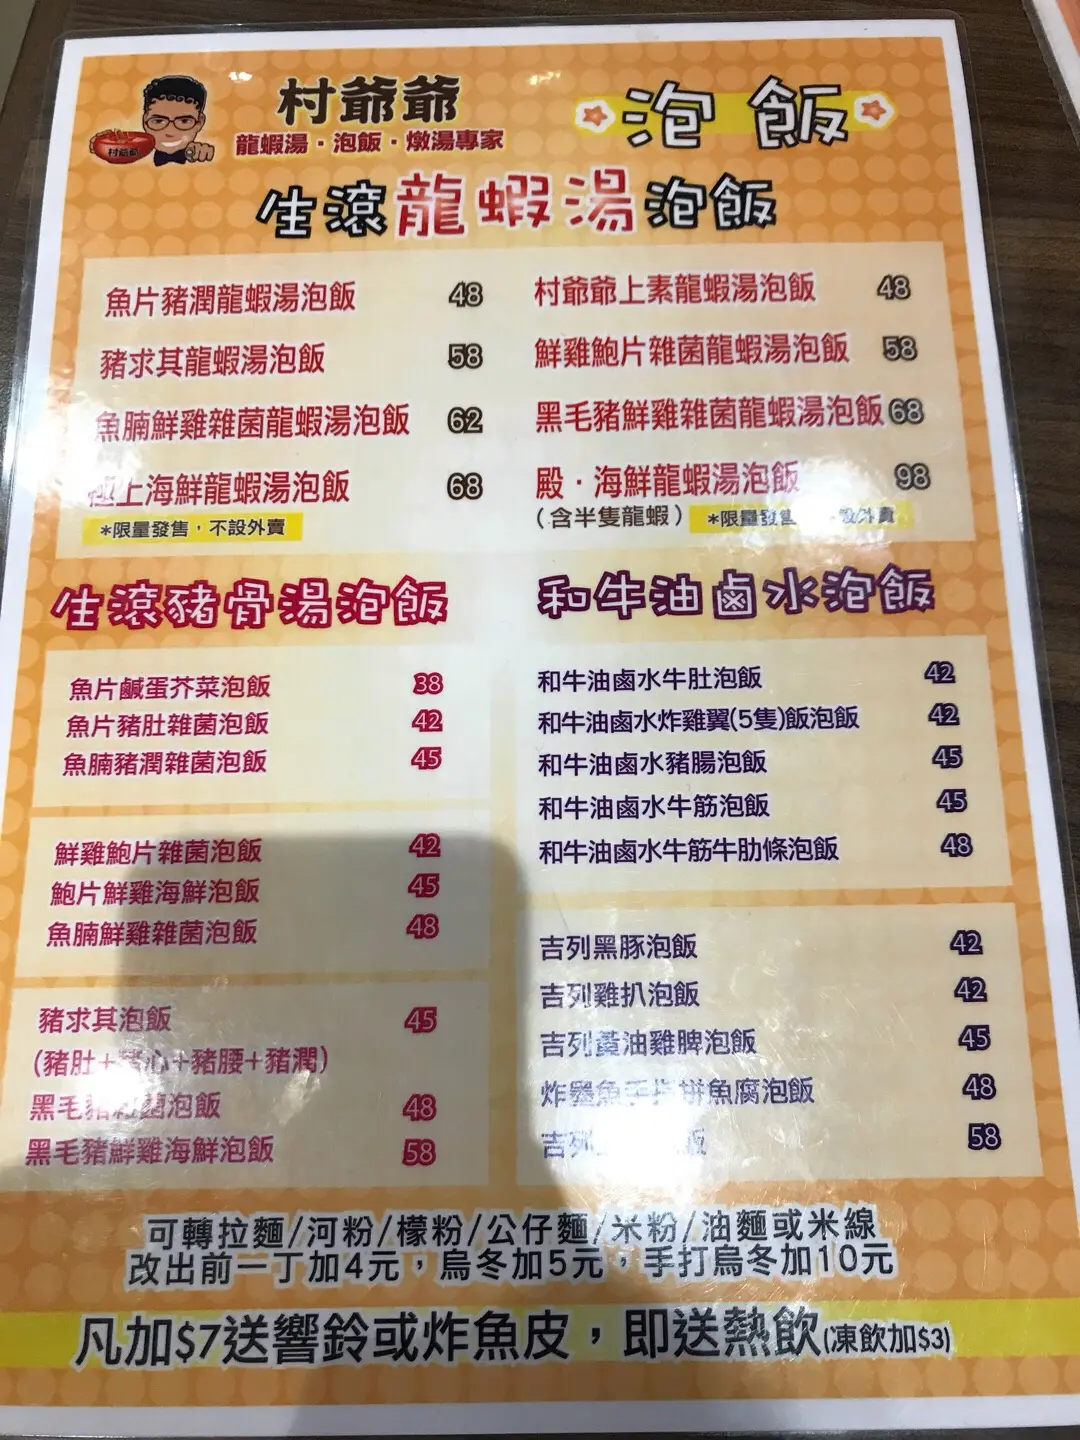 村爺爺
龍蝦湯·泡飯·燉湯專家
村爺爺
泡飯
生滾龍蝦湯泡飯
魚片豬潤龍蝦湯泡飯 48
豬求其龍蝦湯泡飯 58
魚腩鮮雞雜菌龍蝦湯泡飯 62
極上海鮮龍蝦湯泡飯 68
*限量發售，不設外賣
村爺爺上素龍蝦湯泡飯 48
鮮雞鮑片雜菌龍蝦湯泡飯 58
黑毛豬鮮雞雜菌龍蝦湯泡飯 68
殿·海鮮龍蝦湯泡飯 98
（含半隻龍蝦） *限量發售 設外賣
生滾豬骨湯泡飯
魚片鹹蛋芥菜泡飯 38
魚片豬肚雜菌泡飯 42
魚腩豬潤雜菌泡飯 45
鮮雞鮑片雜菌泡飯 42
鮑片鮮雞海鮮泡飯 45
魚腩鮮雞雜菌泡飯 48
豬求其泡飯 45
(豬肚+豬心+豬腰+豬潤)
黑毛豬雜菌泡飯 48
黑毛豬鮮雞海鮮泡飯 58
和牛油鹵水泡飯
和牛油鹵水牛肚泡飯 42
和牛油鹵水炸雞翼(5隻)飯泡飯 42
和牛油鹵水豬腸泡飯 45
和牛油鹵水牛筋泡飯 45
和牛油鹵水牛筋牛肋條泡飯 48
吉列黑豚泡飯 42
吉列雞扒泡飯 42
吉列黃油雞脾泡飯 45
炸墨魚手指拼魚腐泡飯 48
吉列 飯 58
可轉拉麵/河粉/檬粉/公仔麵/米粉/油麵或米線
改出前一丁加4元，烏冬加5元，手打烏冬加10元
凡加$7送響鈴或炸魚皮，即送熱飲(凍飲加$3)